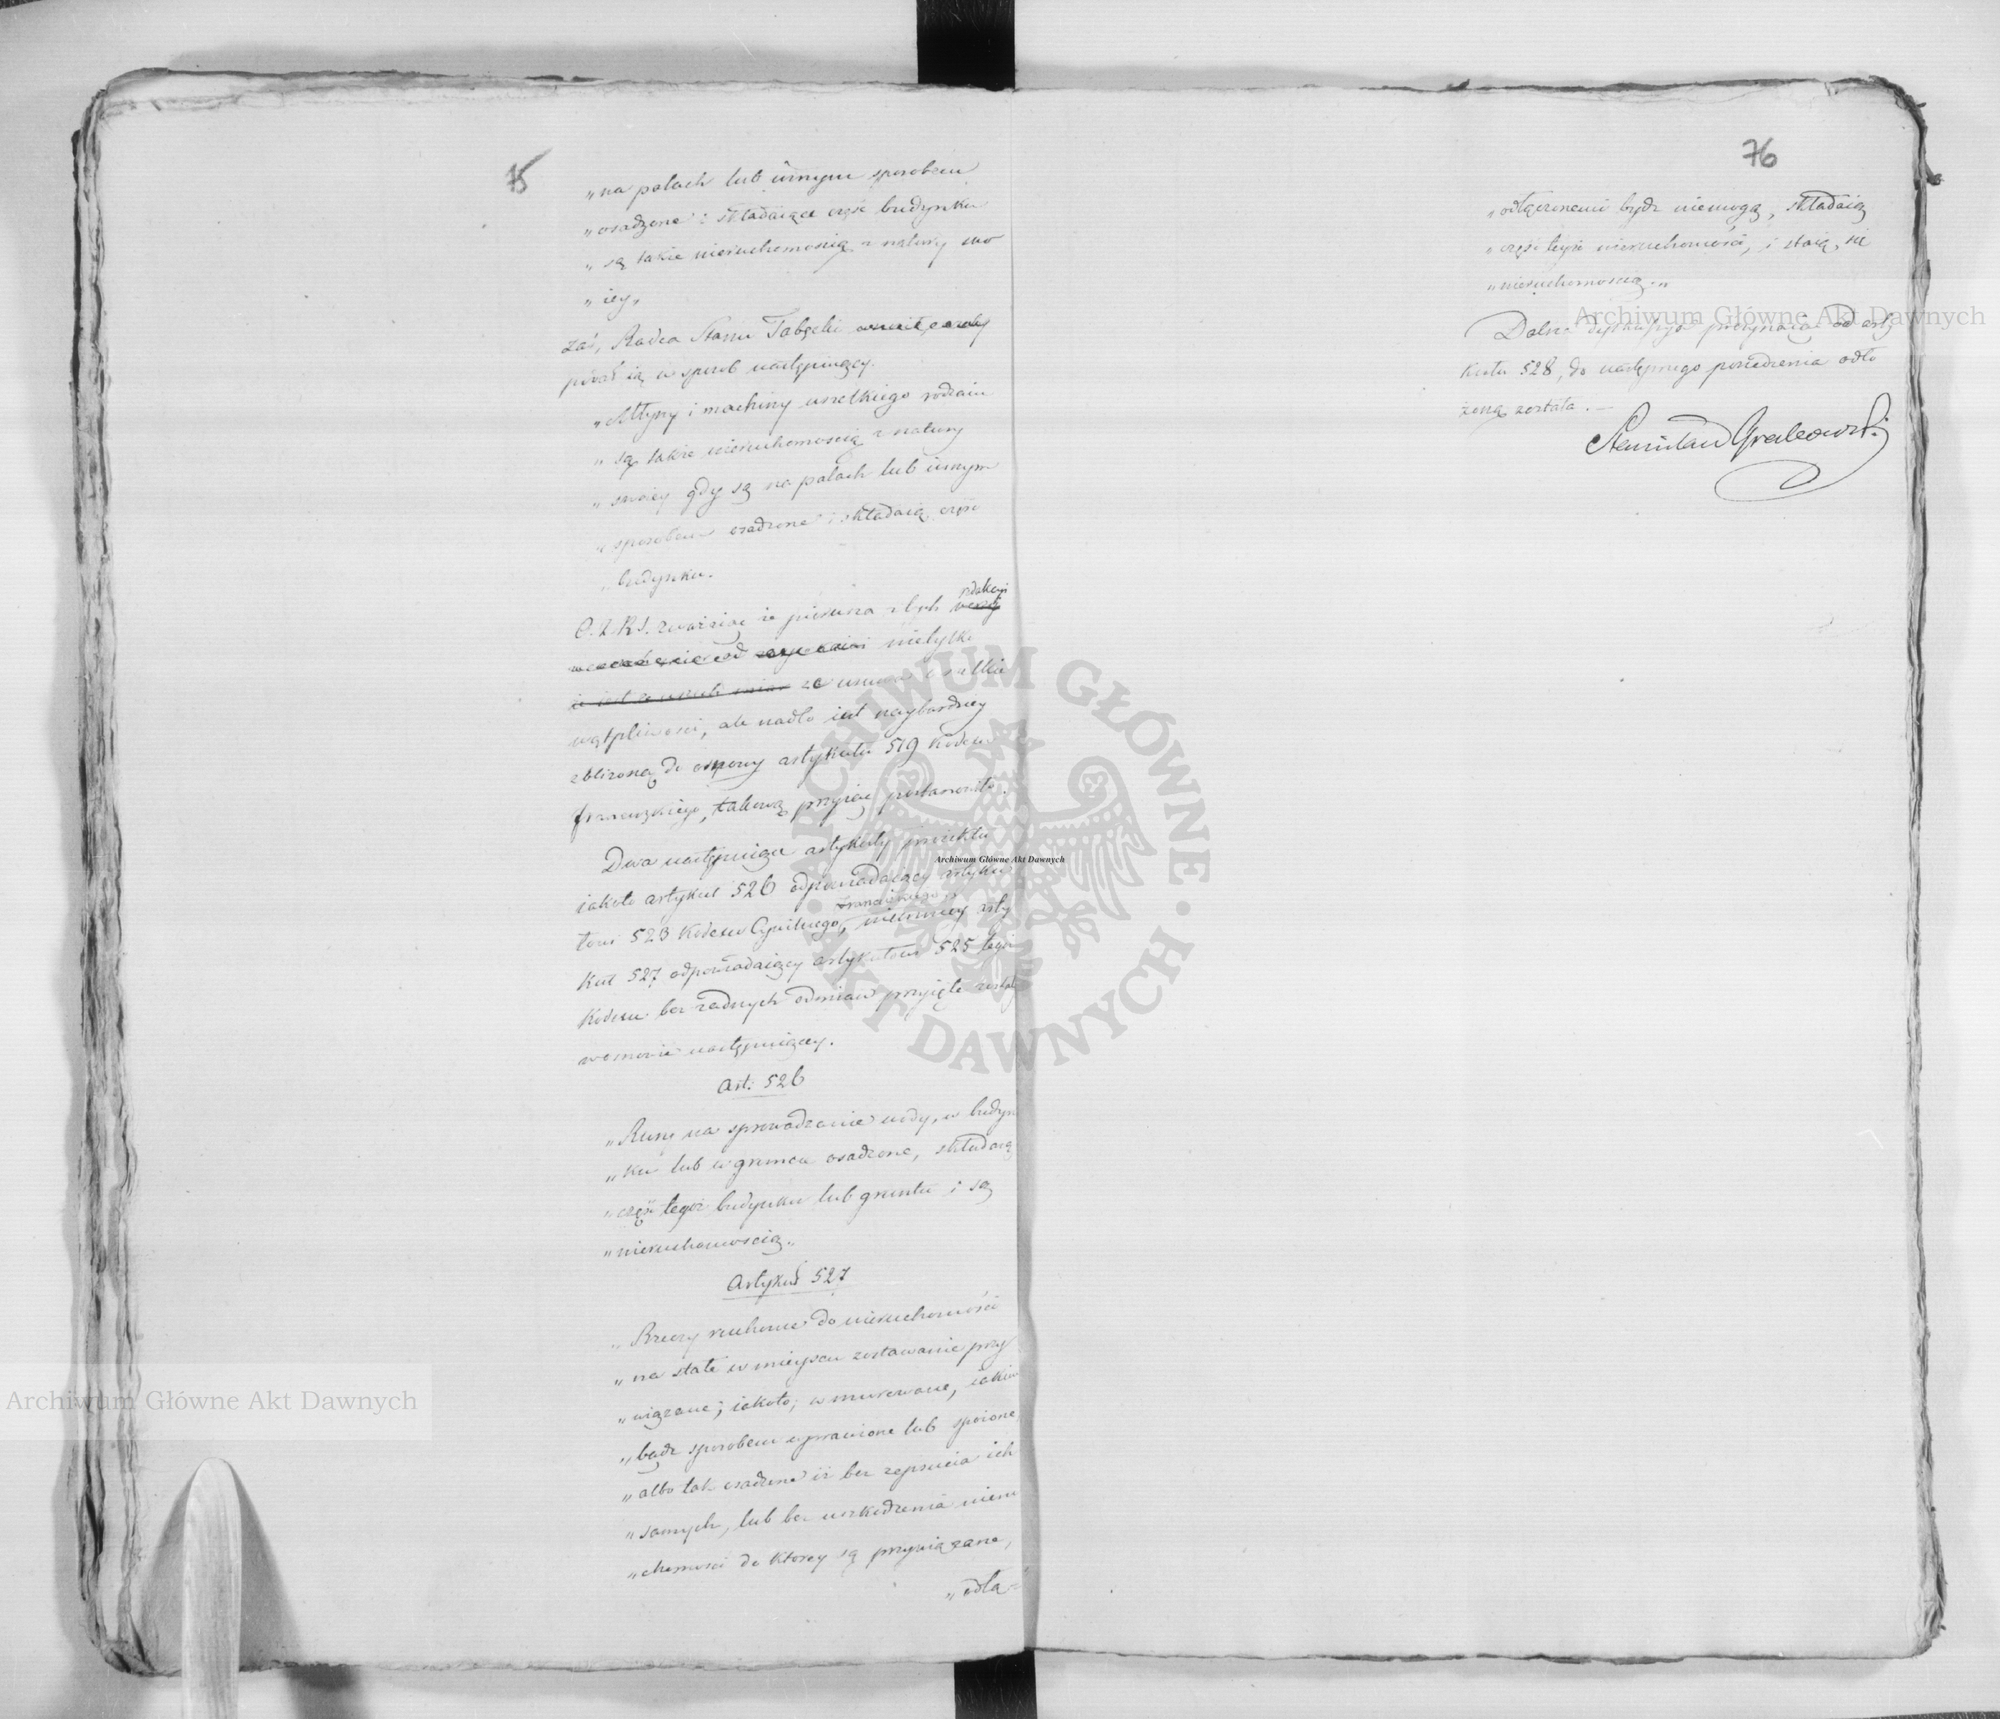 75
„na palach lub innym sposobem
„osadzone i składaiące część budynku
„są także nieruchomością z natury swo
„iey„
zaś, Radca Stanu Tabęcki
pisał ią w sposob następuiący.
„Młyny i machiny wszelkiego rodzaiu
„są także nieruchomością z natury
„swoiey gdy są na palach lub innym
„sposobem osadzone i składaią część
„budynku.
zważaiąc że pierwsza z tych redakcyi
nietylko
że usuwa wszelkie
wątpliwości, ale nadto iest naybardziey
zbliżoną do osnowy artykułu 519 Kodexu
francuzkiego, takową przyiąć postanowiło.
Dwa następuiące artykuły proiektu
iakoto artykuł 526 odpowiadaiący artyku
łowi 523 Kodexu Cywilnego Francuzkiego, niemniey arty
kuł 527 odpowiadaiący artykułowi 525 tegoż
Kodexu bez żadnych odmian przyięte zostały
w osnowie następuiącey.
Art: 526
„Rury na sprowadzanie wody, w budyn
„ku lub w gruncie osadzone, składaią
„część tegoż budynku lub gruntu i są
„nieruchomością„
Artykuł 527
„Rzeczy ruchome do nieruchomości
„na stałe w mieyscu zostawanie przy
„wiązane; iakoto; wmurowane, iakim
„bądź sposobem wprawione lub spoione,
„albo tak osadzone iż bez zepsucia ich
„samych, lub bez uszkodzenia nieru
„chomości do ktorey są przywiązane,
„odłą=
76
„odłączonemi bydź niemogą, składaią
„część teyże nieruchomości, i staią się
„nieruchomością.„
Dalsza dyskussya poczynaiąc od arty
kułu 528, do następnego posiedzenia odło
żoną została. —
Stanisław Grabowski
Archiwum Główne Akt Dawnych
Archiwum Główne Akt Dawnych
Archiwum Główne Akt Dawnych
ARCHIWUM GŁÓWNE · AKT DAWNYCH ·